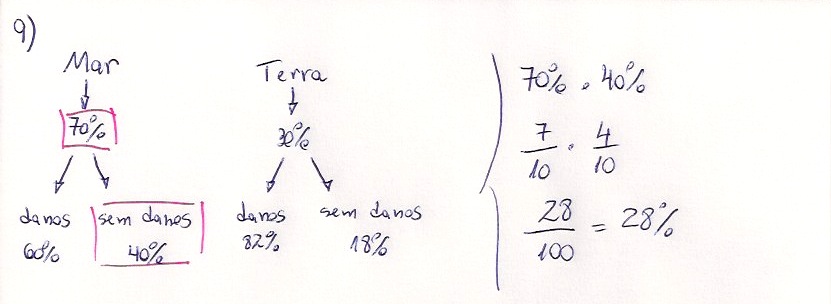 9)
Mar
70%
danos
60%
sem danos
40%
Terra
30%
danos
82%
sem danos
18%
70% . 40%
7/10 . 4/10
28/100 = 28%